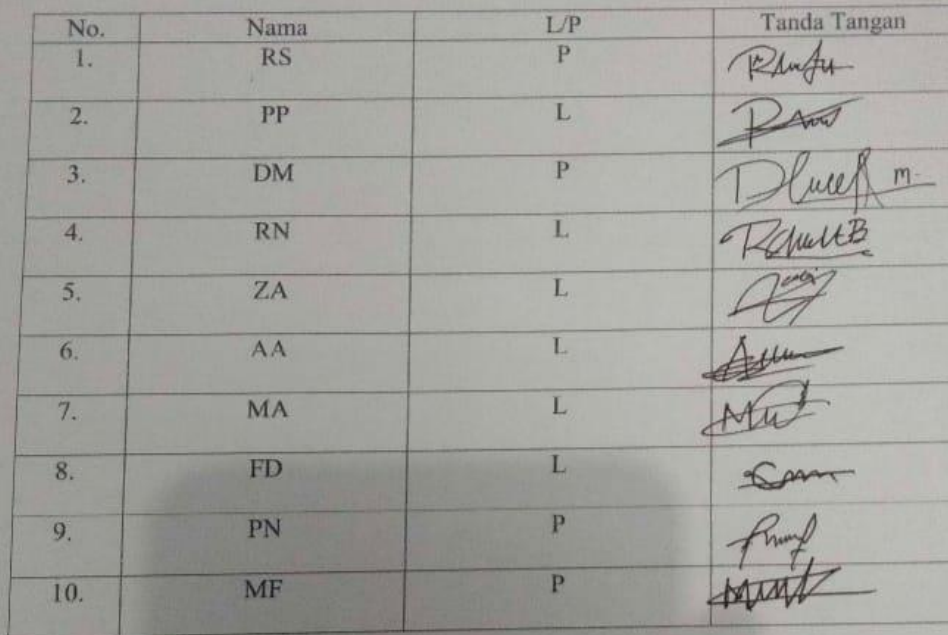 No. Nama L/P Tanda Tangan
1. RS P
2. PP L
3. DM P
4. RN L
5. ZA L
6. AA L
7. MA L
8. FD L
9. PN P
10. MF P